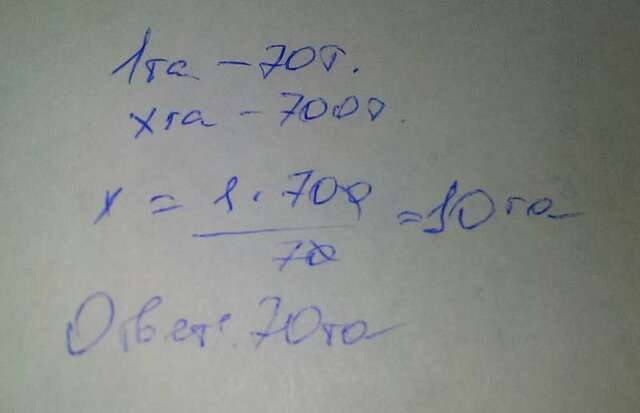 1га – 70т.
xга – 700т.
x = 1 · 700 / 70 = 10га
Ответ: 70га